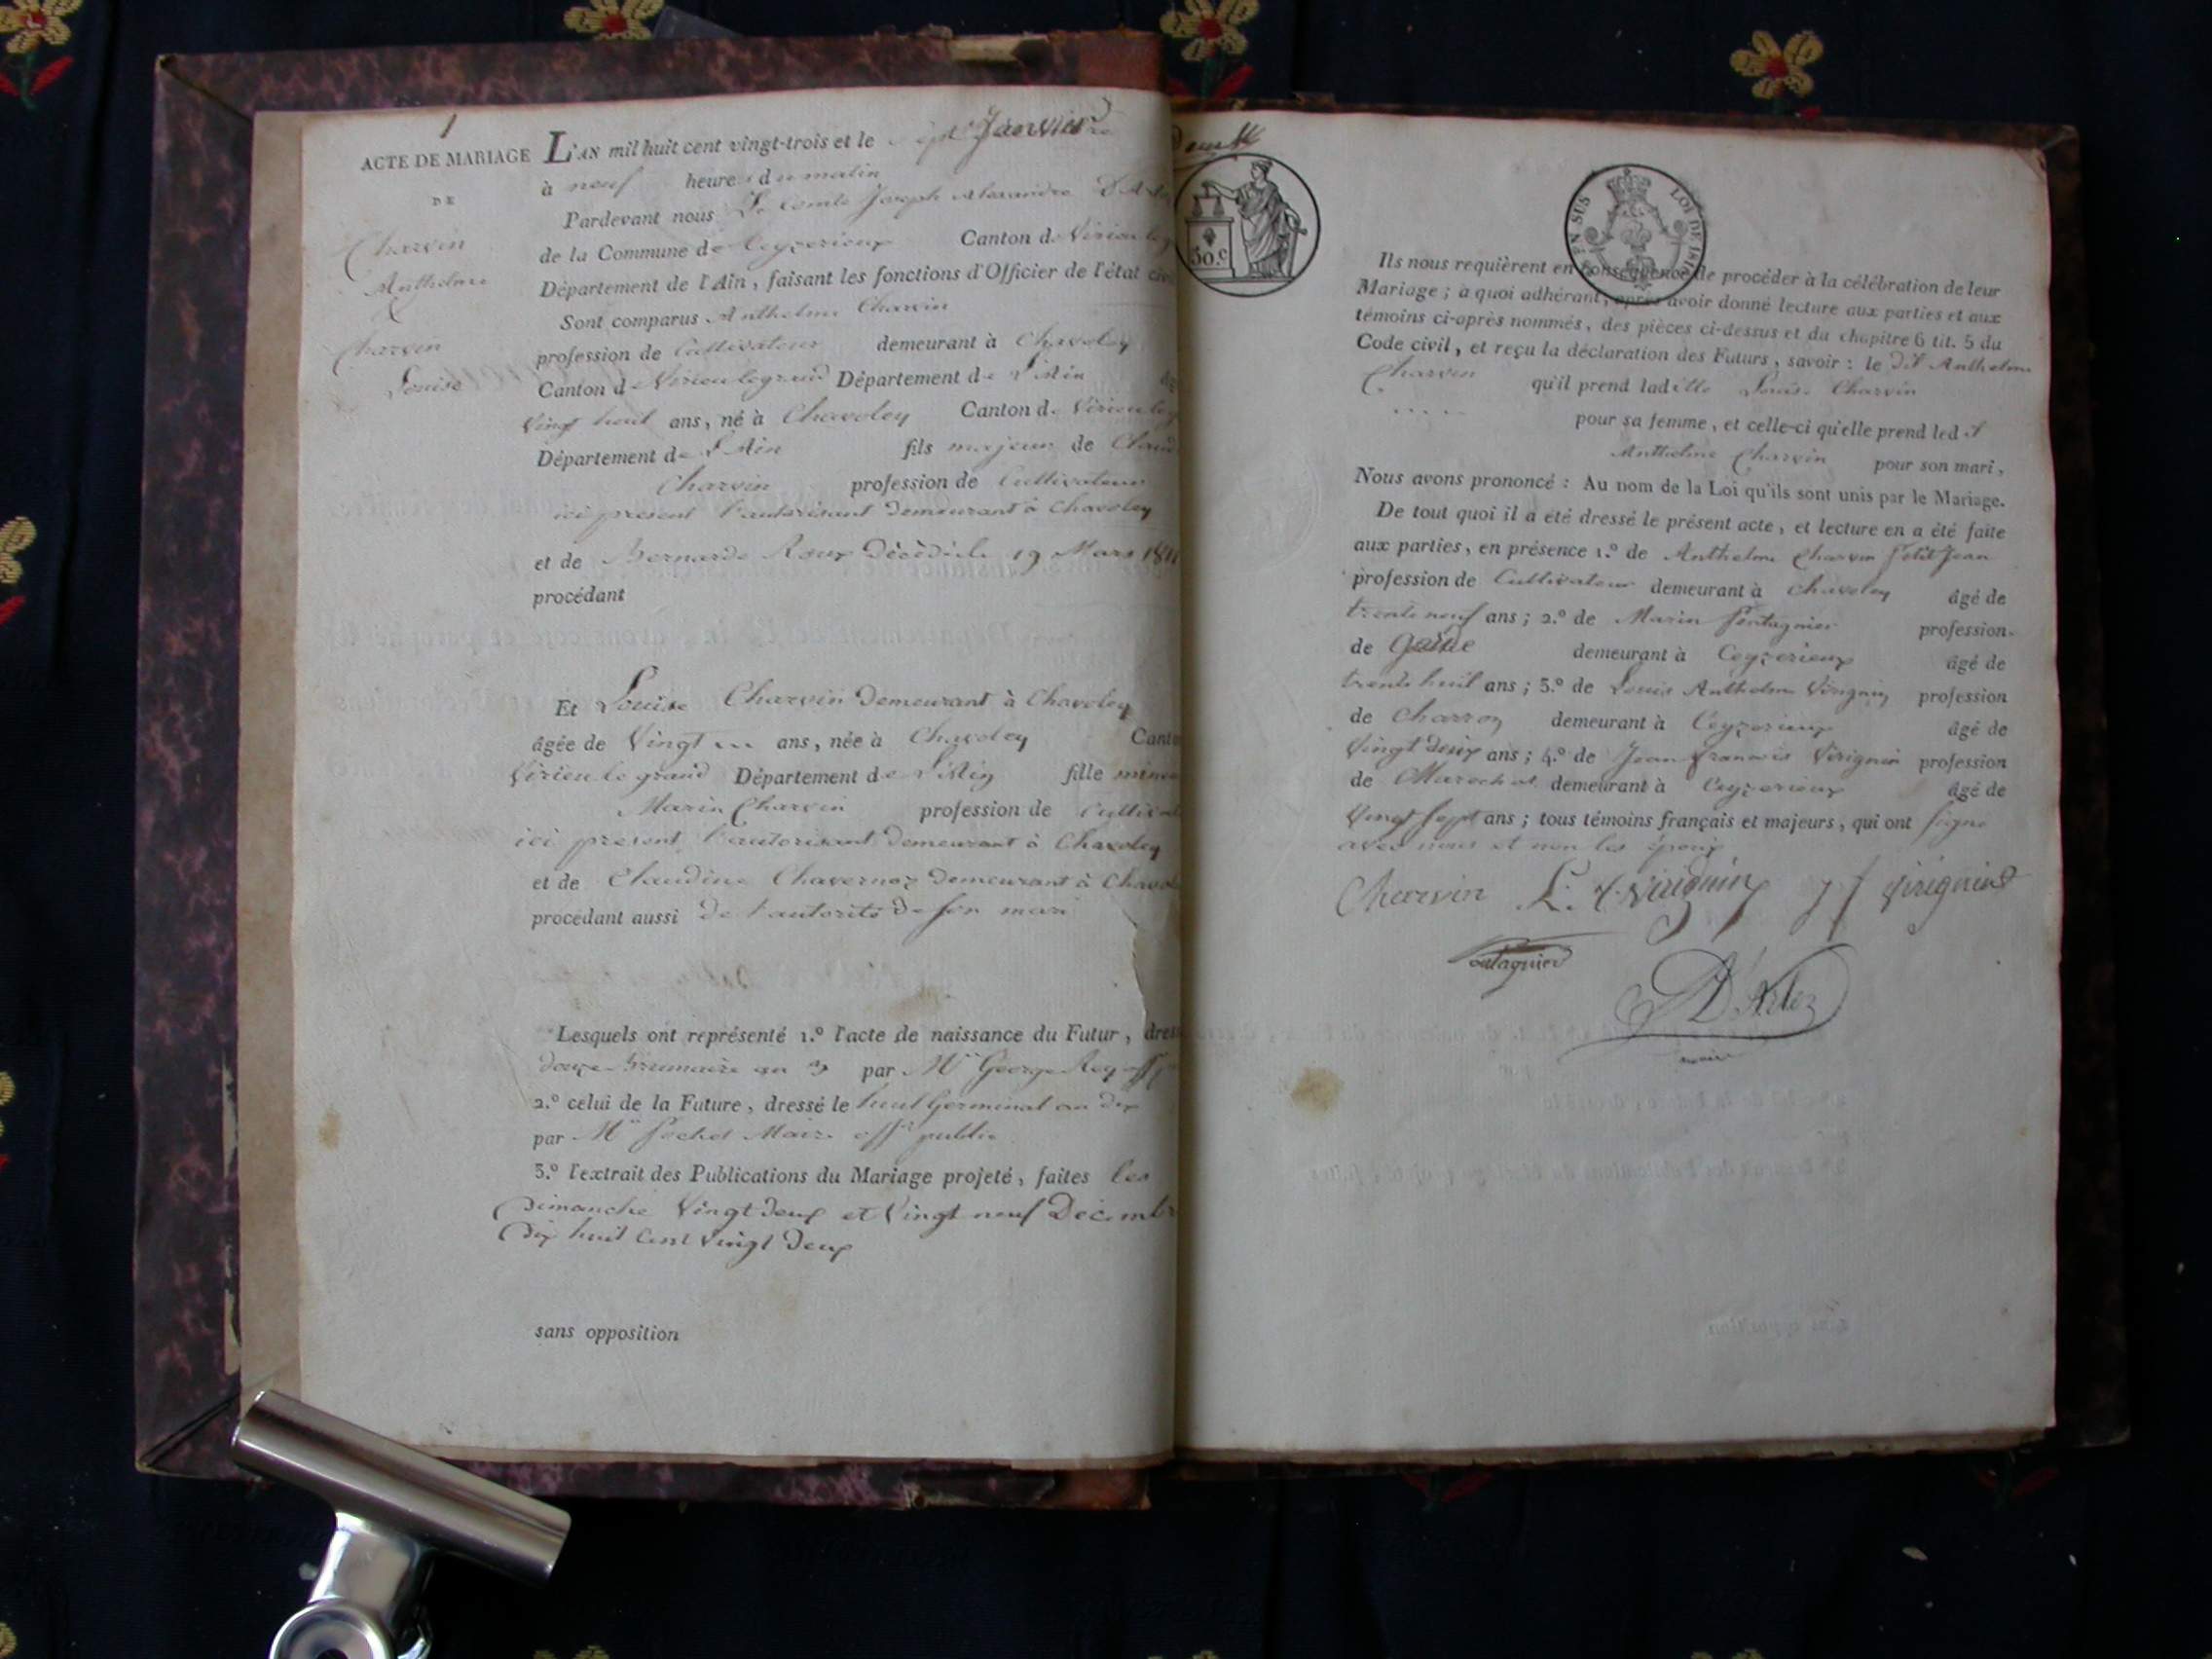 1
ACTE DE MARIAGE
DE
Charvin
Anthelme
&
Charvin
Louise
L'AN mil huit cent vingt-trois et le sept Janvier
à neuf heures du matin
Pardevant nous Le Comte Joseph Alexandre D'A
de la Commune de Ceyzerieux Canton de Virieu le g
Département de l'Ain, faisant les fonctions d'Officier de l'état civ
Sont comparus Anthelme Charvin
profession de Cultivateur demeurant à Chavoley
Canton de Virieu le grand Département de L'Ain âg
Vingt huit ans, né à Chavoley Canton de Virieu le g
Département de L'Ain fils majeur de Claud
Charvin profession de Cultivateur
ici present l'autorisant demeurant à Chavoley
et de Bernarde Roux décédée le 19 Mars 181
procédant
Et Louise Charvin demeurant à Chavoley
âgée de Vingt ans, née à Chavoley Cant
Virieu le grand Département de L'Ain fille mineu
Marin Charvin profession de Cultivat
ici present l'autorisant demeurant à Chavoley
et de Claudine Chavernoz demeurant à Chavol
procédant aussi de l'autorité de son mari
Lesquels ont représenté 1.º l'acte de naissance du Futur, dres
douze Brumaire an 3 par Mr George Rey off p
2.º celui de la Future, dressé le huit Germinal an dix
par Mr Pochet Maire offr public
3.º l'extrait des Publications du Mariage projeté, faites les
Dimanche Vingt deux et Vingt neuf Décembr
Dix huit Cent Vingt deux
sans opposition
50.c
EN SUS
LOI DE 1816
Ils nous requièrent en conséquence de procéder à la célébration de leur
Mariage; à quoi adhérant, après avoir donné lecture aux parties et aux
témoins ci-après nommés, des pièces ci-dessus et du chapitre 6 tit. 5 du
Code civil, et reçu la déclaration des Futurs, savoir: le dit Anthelme
Charvin qu'il prend ladite Louise Charvin
pour sa femme, et celle-ci qu'elle prend led it
Anthelme Charvin pour son mari,
Nous avons prononcé: Au nom de la Loi qu'ils sont unis par le Mariage.
De tout quoi il a été dressé le présent acte, et lecture en a été faite
aux parties, en présence 1.º de Anthelme Charvin Petit Jean
profession de Cultivateur demeurant à Chavoley âgé de
trente neuf ans; 2.º de Marin Pontagnier profession
de demeurant à Ceyzerieux âgé de
trente huit ans; 3.º de Louis Anthelme Virignin profession
de Charron demeurant à Ceyzerieux âgé de
Vingt deux ans; 4.º de Jean François Virignin profession
de Marechal demeurant à Ceyzerieux âgé de
Vingt Sept ans; tous témoins français et majeurs, qui ont signé
avec nous et non les époux
Charvin L. A. Virignin J f Virignin
Pontagnier
D'Arloz
maire